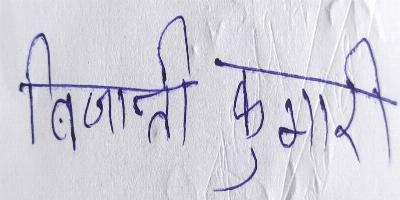 बिजान्ती कुमारी